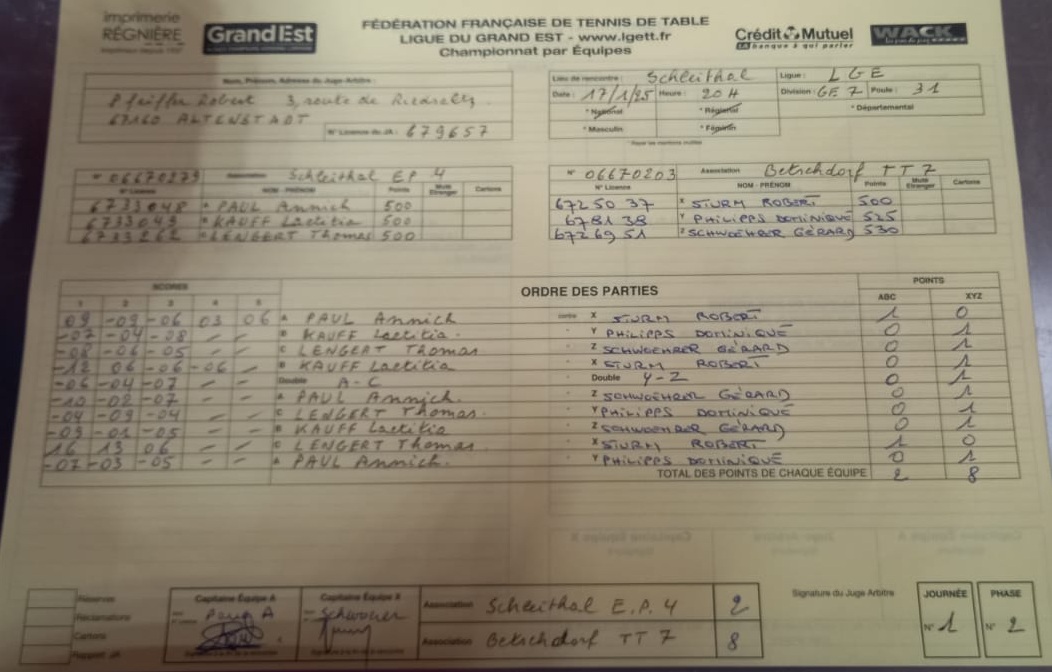 imprimerie
RÉGNIÈRE
Grand Est
FÉDÉRATION FRANÇAISE DE TENNIS DE TABLE
LIGUE DU GRAND EST - www.lgett.fr
Championnat par Équipes
Crédit Mutuel
LA banque à qui parler
WACK
Nom, Prénom, Adresse du Juge-Arbitre :
Pfeiffer Robert 3, route de
67160 ALTENSTADT
N° Licence du JA : 679657
Lieu de rencontre : Schleithal Ligue : LGE
Date : 17/1/25 Heure : 20H Division : GE 7 Poule : 31
* National * Régional * Départemental
* Masculin * Féminin
N° 06670273 Association Schleithal EP 4
N° Licence NOM - PRÉNOM Points Muté Etranger Cartons
6733048 A PAUL Annick 500
6733049 B KAUFF Laetitia 500
6733262 C LENGERT Thomas 500
N° 06670203 Association Betschdorf TT 7
N° Licence NOM - PRÉNOM Points Muté Etranger Cartons
6725037 X STURM ROBERT 500
678138 Y PHILIPPS DOMINIQUE 525
6726951 Z SCHWOEHRER GÉRARD 530
SCORES ORDRE DES PARTIES POINTS
1 2 3 4 5 ABC XYZ
09 -09 -06 03 06 A PAUL Annick contre X STURM ROBERT 1 0
-07 -04 -08 - - B KAUFF Laetitia " Y PHILIPPS DOMINIQUE 0 1
-08 -06 -05 - - C LENGERT Thomas " Z SCHWOEHRER GÉRARD 0 1
-12 06 -06 -06 - B KAUFF Laetitia " X STURM ROBERT 0 1
-06 -04 -07 - - Double A-C " Double Y-Z 0 1
-10 -02 -07 - - A PAUL Annick " Z SCHWOEHRER GÉRARD 0 1
-04 -09 -04 - - C LENGERT Thomas " Y PHILIPPS DOMINIQUE 0 1
-09 -01 -05 - - B KAUFF Laetitia " Z SCHWOEHRER GÉRARD 0 1
16 13 06 - - C LENGERT Thomas " X STURM ROBERT 1 0
-07 -03 -05 - - A PAUL Annick " Y PHILIPPS DOMINIQUE 0 1
TOTAL DES POINTS DE CHAQUE ÉQUIPE 2 8
Réserves
Réclamations
Cartons
Rapport JA
Capitaine Équipe A
Paul A
Capitaine Équipe X
Association Schleithal E.P. 4 2
Association Betschdorf TT 7 8
Signature du Juge Arbitre
JOURNÉE
N° 1
PHASE
N° 2